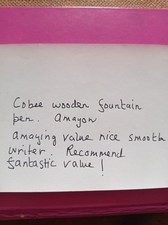 Cobee wooden fountain
pen. Amazon
amazing value nice smooth
writer. Recommend
fantastic value!